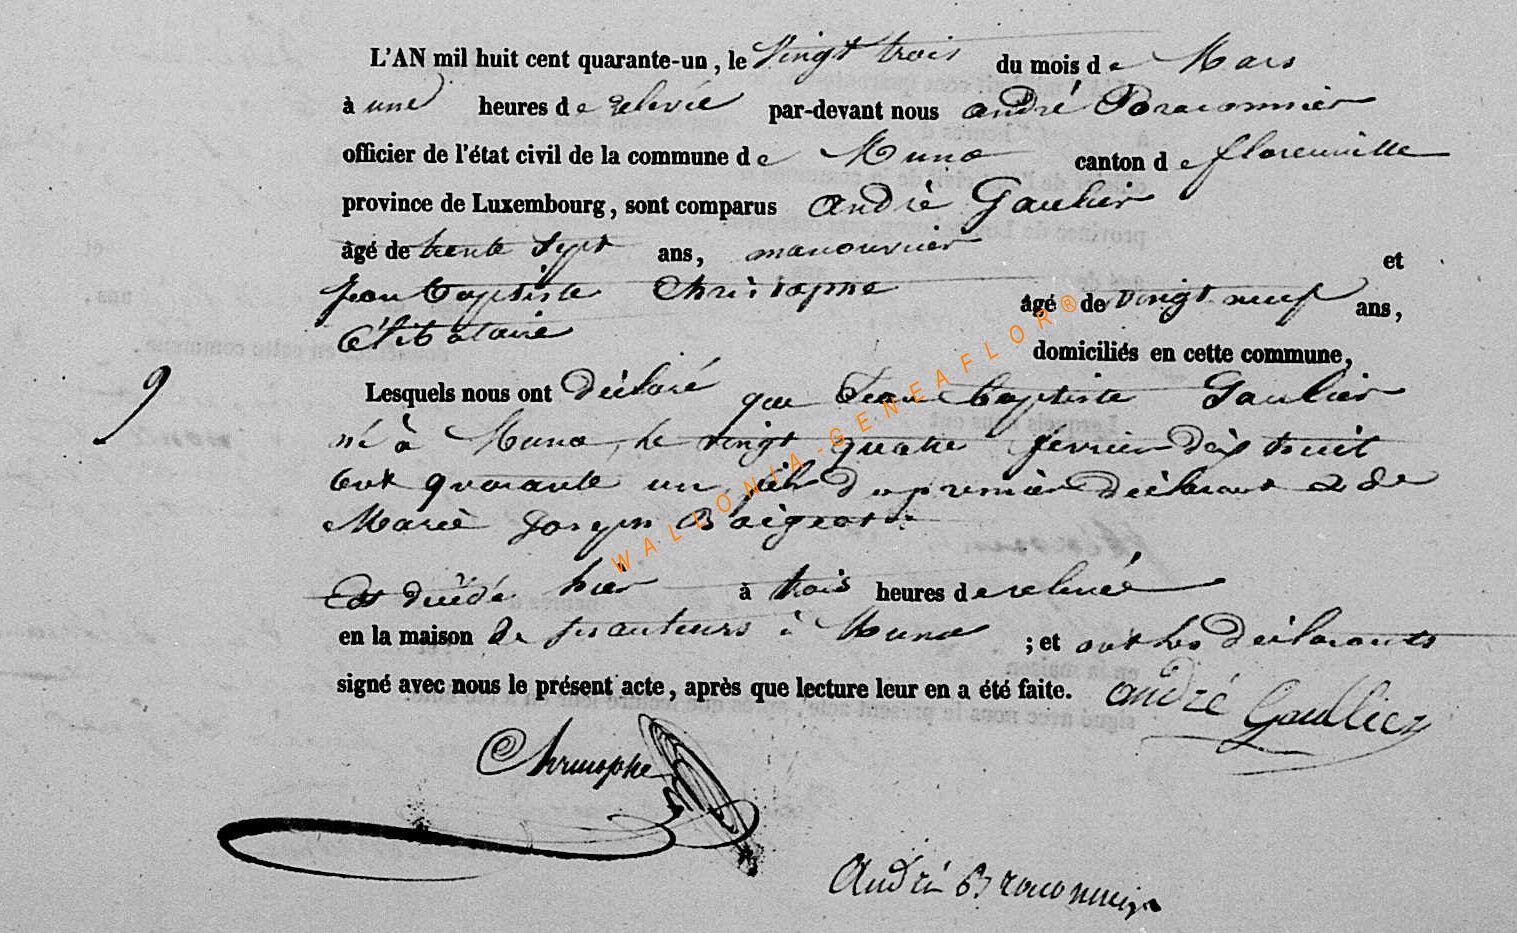 L'AN mil huit cent quarante-un, le Vingt trois du mois de Mars
à une heures de relevée par-devant nous André Braconnier
officier de l'état civil de la commune de Muno canton de florenville
province de Luxembourg, sont comparus André Gaulier
âgé de trente sept ans, manouvrier et
Jean Baptiste Christophe âgé de vingt neuf ans,
Célibataire domiciliés en cette commune,
Lesquels nous ont déclaré que Jean Baptiste Gaulier
9
né à Muno, le vingt quatre février dix huit
cent quarante un fils du premier déclarant & de
Marie Joseph Baigeot
Est décédé hier à trois heures de relevée
en la maison de à Muno ; et ont les déclarants
signé avec nous le présent acte, après que lecture leur en a été faite. André Gaullier
Christophe
André Braconnier
WALLONIA-GENEAFLOR®